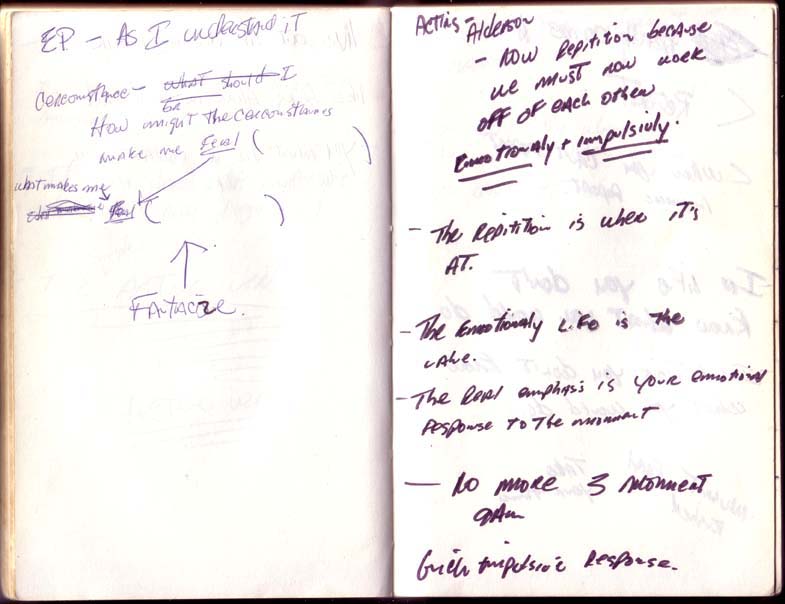 EP - As I understand it
Cercomstance - what should I
or
How might the cercomstances
make me feeal ( )
what makes me
feeal ( )
Fantacize.
Acting - Alderson
- Now Repitition because
we must now work
off of each other
Emotionaly + impulsivly.
- The Repitition is when it's
AT.
- The Emotionaly Life is the
value.
- The Real emphasis is your emotional
Response to the moment
- No more 3 moment
gam
Quick impulsive Response.